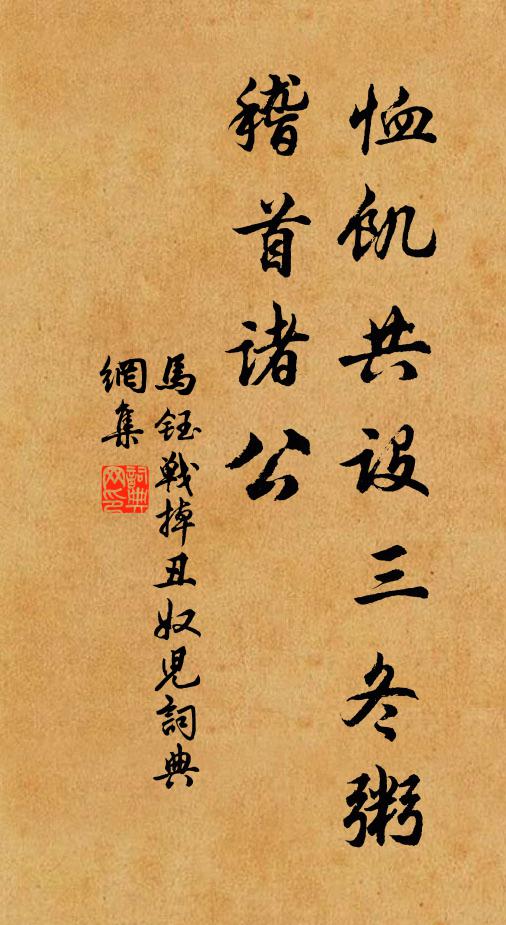 恤飢共设三冬粥
稽首诸公
馬鈺戰掉丑奴児詞典
網集
詞典
网印